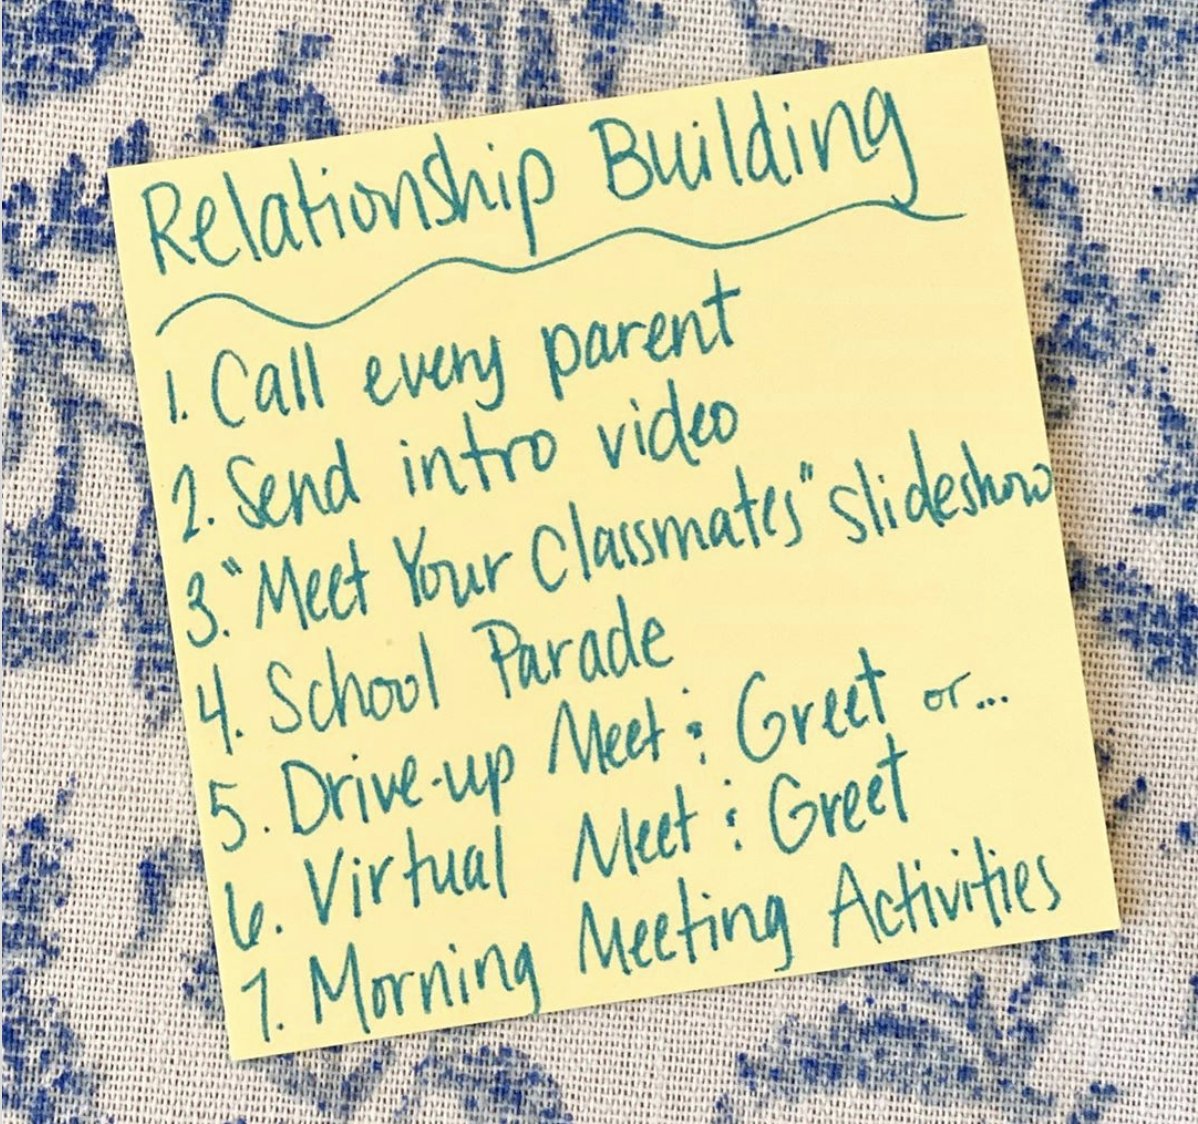 Relationship Building
1. Call every parent
2. Send intro video
3. "Meet Your Classmates" slideshow
4. School Parade
5. Drive-up Meet & Greet or...
6. Virtual Meet & Greet
7. Morning Meeting Activities